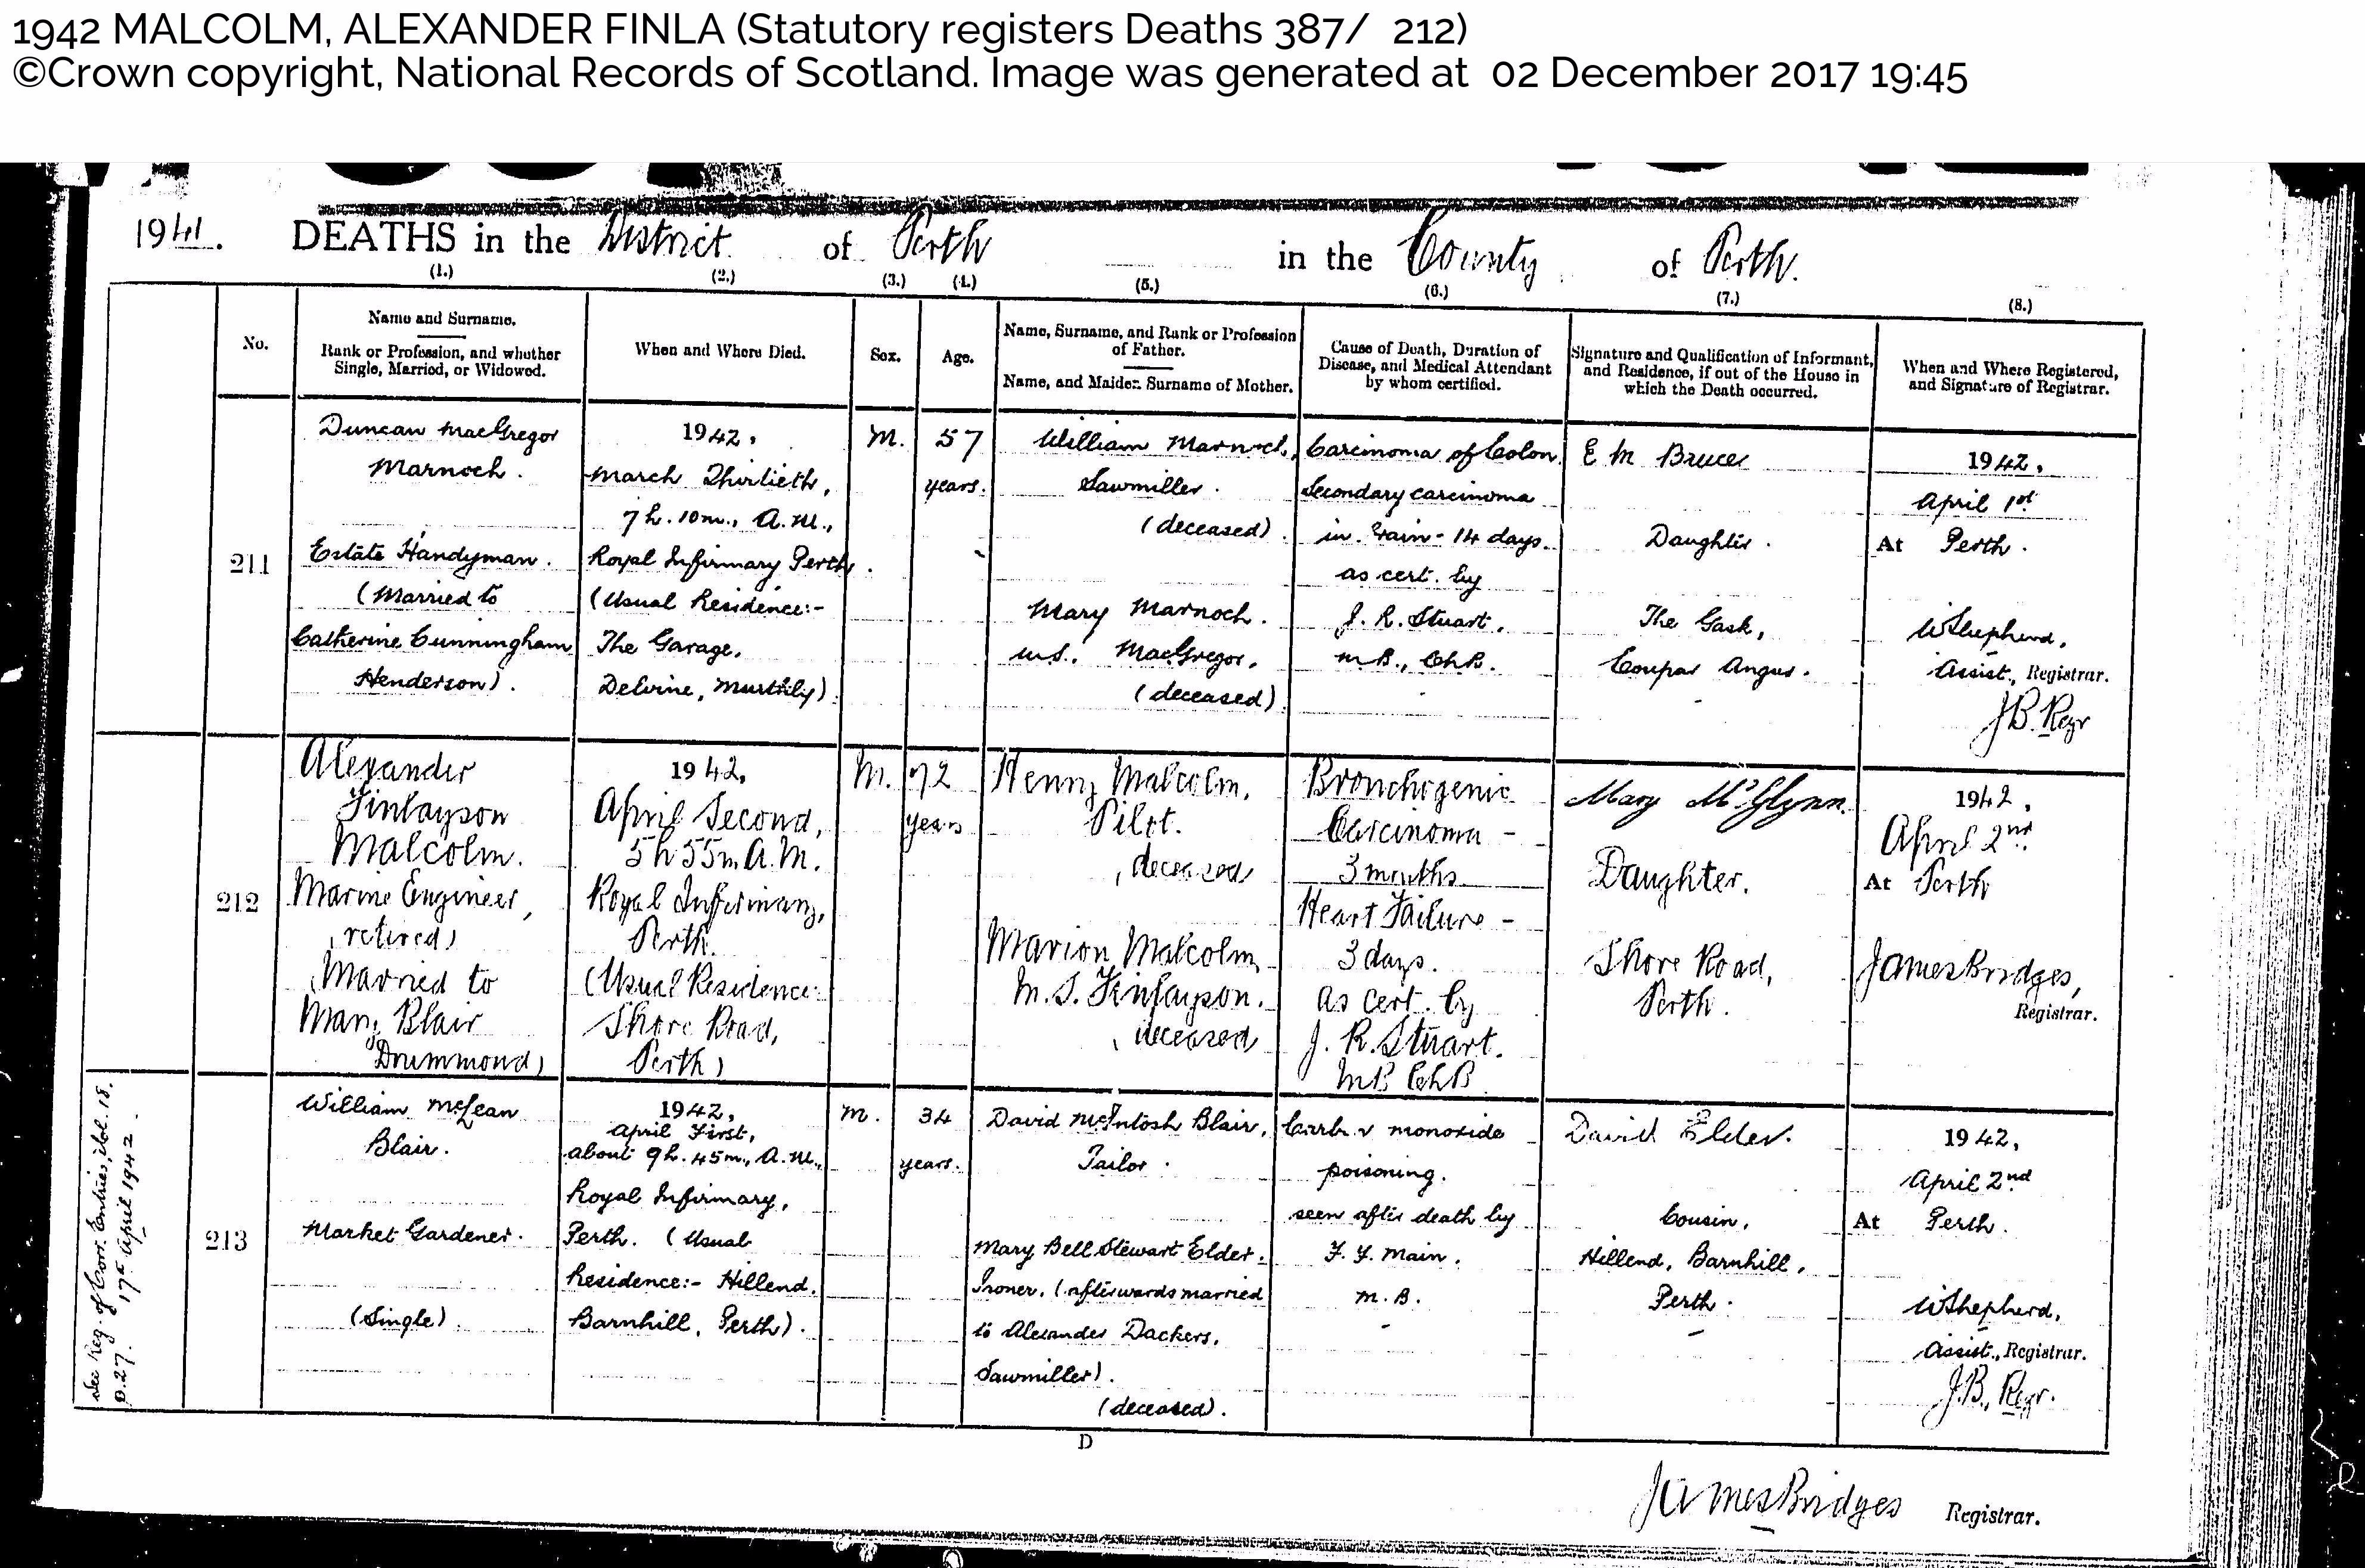 1942 MALCOLM, ALEXANDER FINLA (Statutory registers Deaths 387/ 212)
©Crown copyright, National Records of Scotland. Image was generated at 02 December 2017 19:45
1941. DEATHS in the District of Perth in the County of Perth.
(1.) (2.) (3.) (4.) (5.) (6.) (7.) (8.)
No.
Name and Surname.
Rank or Profession, and whether
Single, Married, or Widowed.
When and Where Died.
Sex.
Age.
Name, Surname, and Rank or Profession
of Father.
Name, and Maiden Surname of Mother.
Cause of Death, Duration of
Disease, and Medical Attendant
by whom certified.
Signature and Qualification of Informant,
and Residence, if out of the House in
which the Death occurred.
When and Where Registered,
and Signature of Registrar.
211
Duncan MacGregor
Marnoch.
Estate Handyman.
(Married to
Catherine Cunningham
Henderson).
1942,
March Thirtieth,
7h. 10m., A.M.,
Royal Infirmary Perth.
(Usual Residence:-
The Garage,
Delvine, Murthly).
M.
57
years.
William Marnoch,
Sawmiller.
(deceased).
Mary Marnoch.
m.s. MacGregor.
(deceased)
Carcinoma of Colon.
Secondary carcinoma
in Brain - 14 days.
as cert. by
J. R. Stuart,
M.B., Ch.B.
E M Bruce
Daughter.
The Gask,
Coupar Angus.
1942,
April 1st
At Perth.
W Shepherd,
Assist., Registrar.
J.B. Regr
212
Alexander
Finlayson
Malcolm.
Marine Engineer,
(retired)
(Married to
Mary Blair
Drummond)
1942,
April Second,
5h 55m A.M.
Royal Infirmary,
Perth.
(Usual Residence:
Shore Road,
Perth)
M.
72
years
Henry Malcolm,
Pilot.
(deceased)
Marion Malcolm
M.S. Finlayson.
(deceased)
Bronchogenic
Carcinoma -
3 months
Heart Failure -
3 days.
as cert. by
J. R. Stuart.
M B Ch B
Mary McGlynn.
Daughter.
Shore Road,
Perth.
1942,
April 2nd
At Perth
James Bridges,
Registrar.
See Reg. of Corr. Entries, Vol. 18.
p. 27. 17th April 1942.
213
William McLean
Blair.
Market Gardener.
(Single).
1942,
April First,
about 9h. 45m., A.M.,
Royal Infirmary,
Perth. (Usual
Residence:- Hillend.
Barnhill, Perth).
M.
34
years.
David McIntosh Blair,
Tailor.
Mary Bell Stewart Elder.
Ironer. (afterwards married
to Alexander Dackers,
Sawmiller).
(deceased).
Carbon monoxide
poisoning.
seen after death by
F. F. Main,
M.B.
David Elder.
Cousin,
Hillend, Barnhill,
Perth.
1942,
April 2nd
At Perth.
W Shepherd,
Assist., Registrar.
J.B., Regr.
D
James Bridges Registrar.